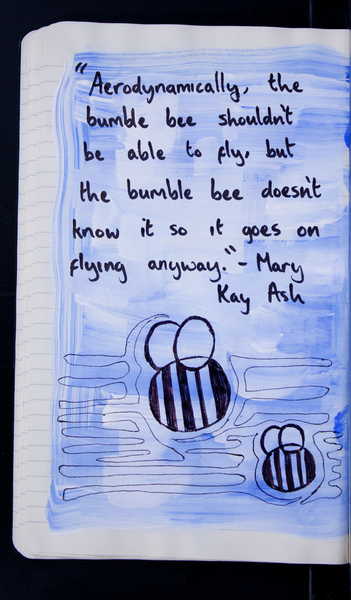 "Aerodynamically, the
bumble bee shouldn't
be able to fly, but
the bumble bee doesn't
know it so it goes on
flying anyway." - Mary
Kay Ash